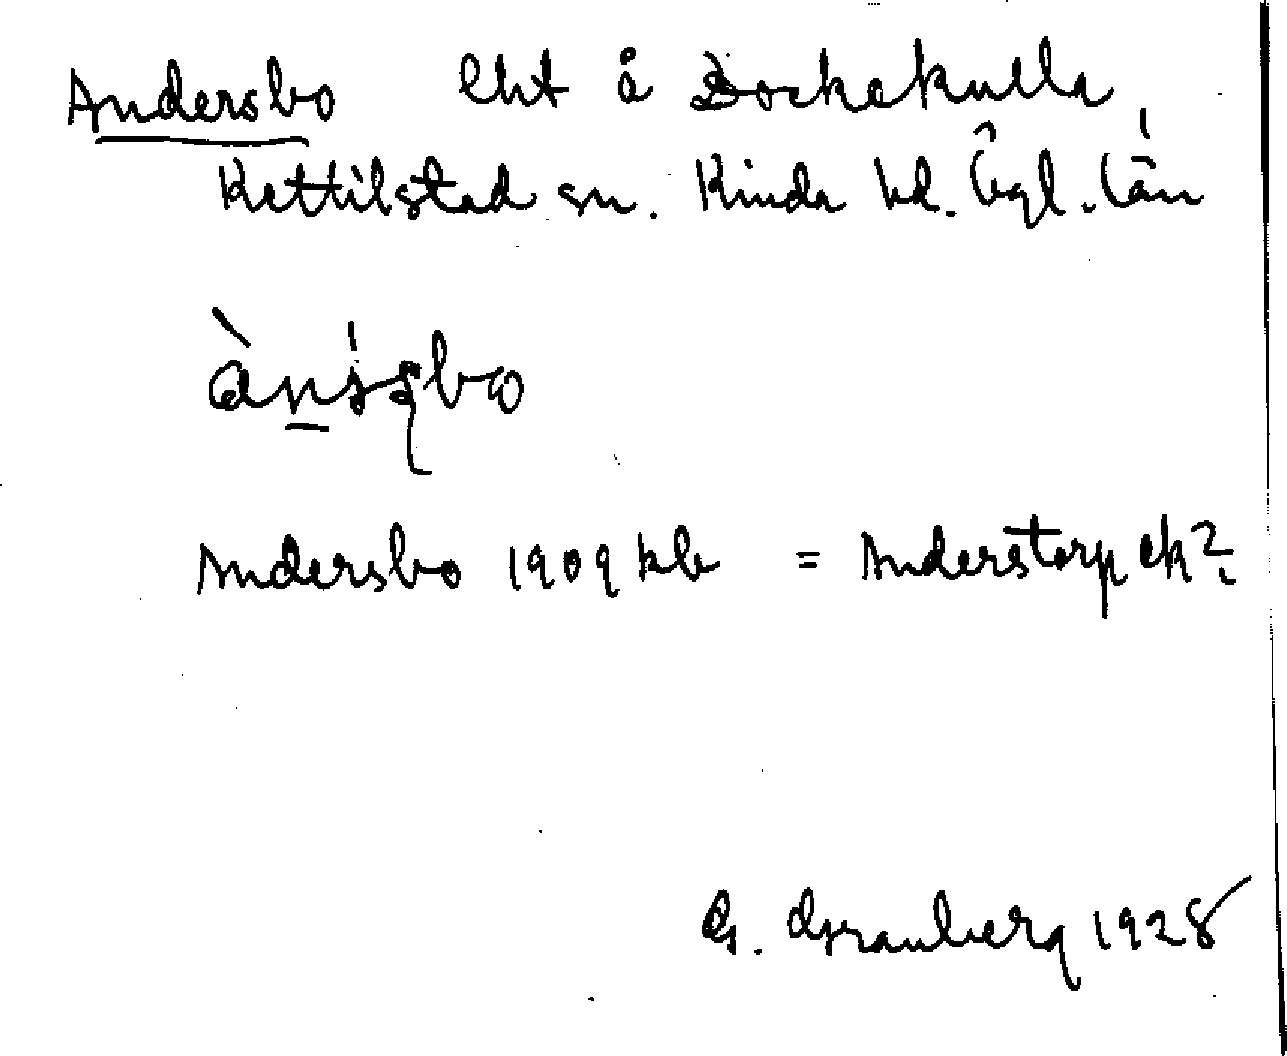 Andersbo lht å Dockekulla,
Kettilstad sn. Kinda hd. Ögl. län
Andersbo 1909 kb = Anderstorp ek?
G. Granberg 1928